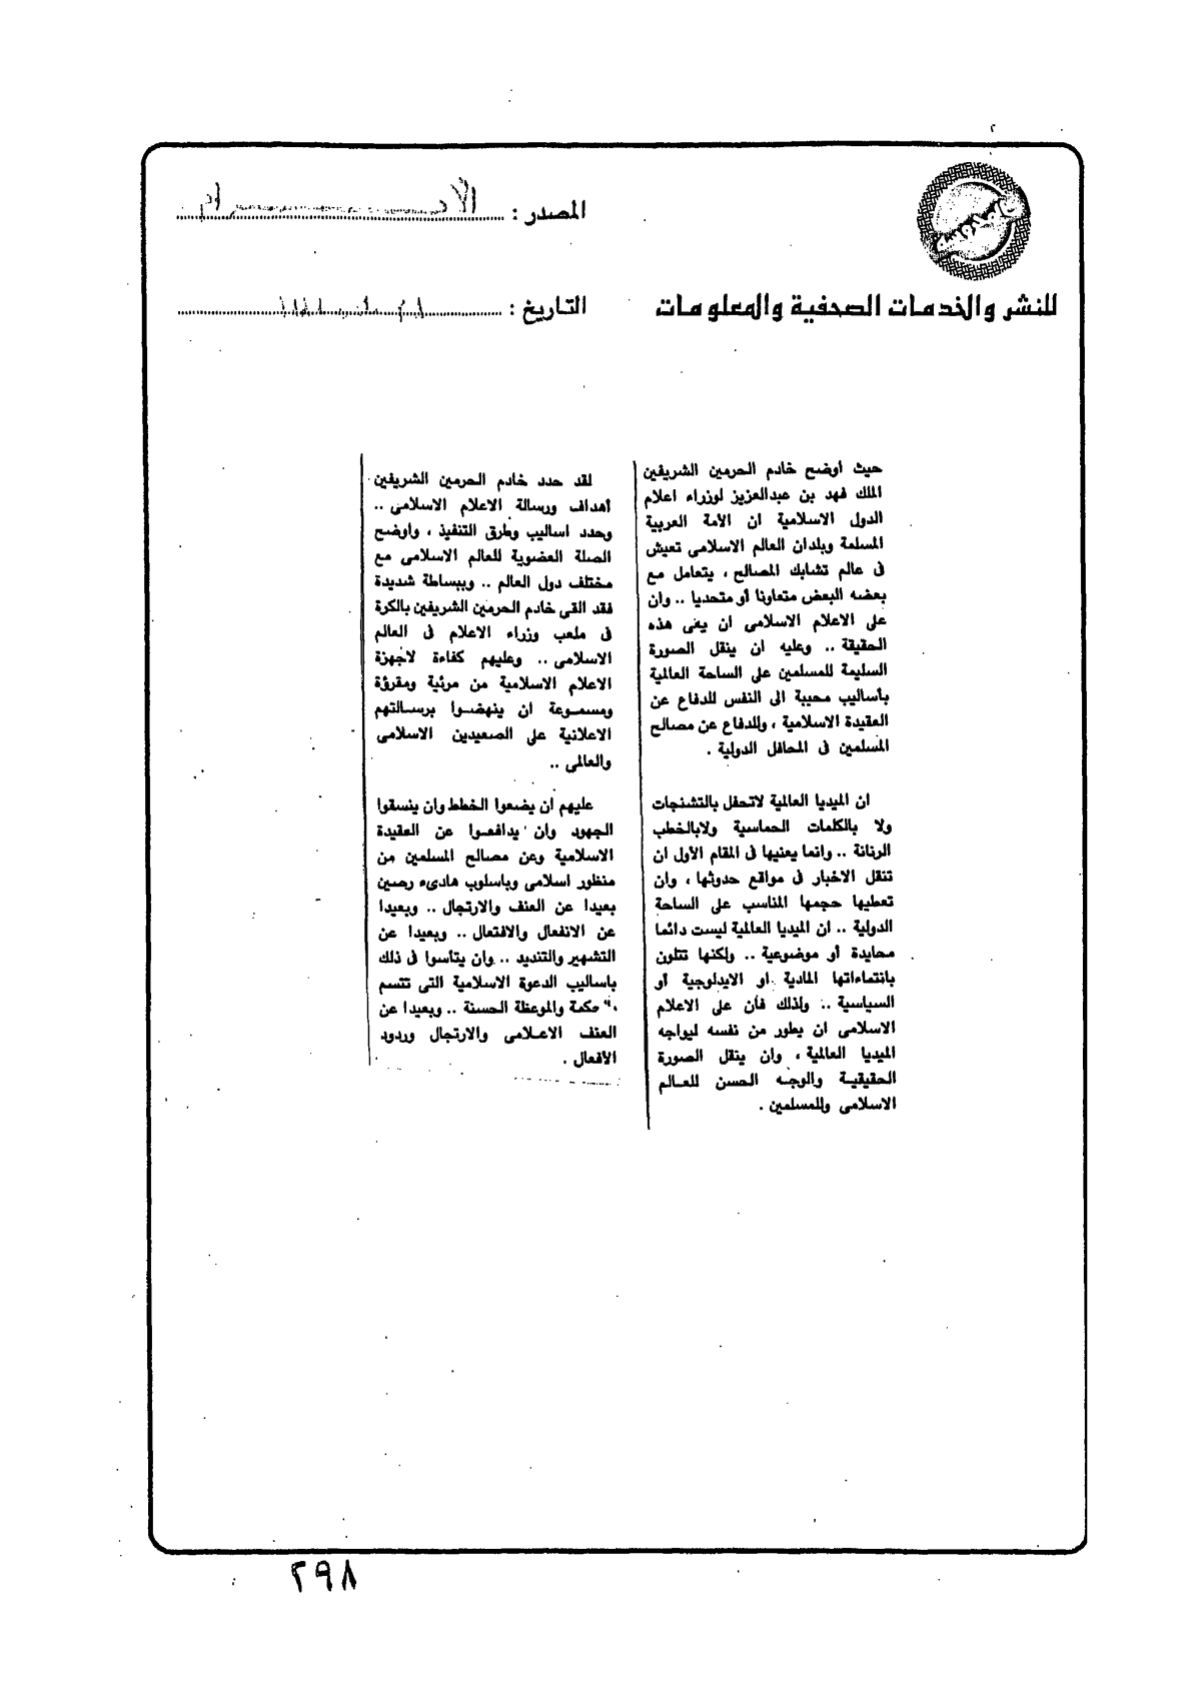 المصدر : الأهـــرام
للنشر والخدمات الصحفية والمعلومات
التاريخ :
حيث اوضح خادم الحرمين الشريفين
الملك فهد بن عبدالعزيز لوزراء اعلام
الدول الاسلامية ان الأمة العربية
المسلمة وبلدان العالم الاسلامى تعيش
فى عالم تشابك المصالح ، يتعامل مع
بعضه البعض متعاونا أو متحديا .. وان
على الاعلام الاسلامى ان يعى هذه
الحقيقة .. وعليه ان ينقل الصورة
السليمة للمسلمين على الساحة العالمية
بأساليب محببة الى النفس للدفاع عن
العقيدة الاسلامية ، وللدفاع عن مصالح
المسلمين فى المحافل الدولية .
ان الميديا العالمية لاتحفل بالتشنجات
ولا بالكلمات الحماسية ولابالخطب
الرنانة .. وانما يعنيها فى المقام الأول ان
تنقل الاخبار فى مواقع حدوثها ، وان
تعطيها حجمها المناسب على الساحة
الدولية .. ان الميديا العالمية ليست دائما
محايدة أو موضوعية .. ولكنها تتلون
بانتماءاتها المادية او الايدلوجية أو
السياسية .. ولذلك فأن على الاعلام
الاسلامى ان يطور من نفسه ليواجه
الميديا العالمية ، وان ينقل الصورة
الحقيقية والوجه الحسن للعالم
الاسلامى وللمسلمين .
لقد حدد خادم الحرمين الشريفين
أهداف ورسالة الاعلام الاسلامى ..
وحدد اساليب وطرق التنفيذ ، واوضح
الصلة العضوية للعالم الاسلامى مع
مختلف دول العالم .. وببساطة شديدة
فقد القى خادم الحرمين الشريفين بالكرة
فى ملعب وزراء الاعلام فى العالم
الاسلامى .. وعليهم كفاءة لاجهزة
الاعلام الاسلامية من مرئية ومقرؤة
ومسموعة ان ينهضوا برسالتهم
الاعلانية على الصعيدين الاسلامى
والعالمى ..
عليهم ان يضعوا الخطط وان ينسقوا
الجهود وان يدافعوا عن العقيدة
الاسلامية وعن مصالح المسلمين من
منظور اسلامى وباسلوب هادىء رصين
بعيدا عن العنف والارتجال .. وبعيدا
عن الانفعال والافتعال .. وبعيدا عن
التشهير والتنديد .. وان يتأسوا فى ذلك
باساليب الدعوة الاسلامية التى تتسم
حكمة والموعظة الحسنة .. وبعيدا عن
العنف الاعلامى والارتجال وردود
الأفعال .
٢٩٨